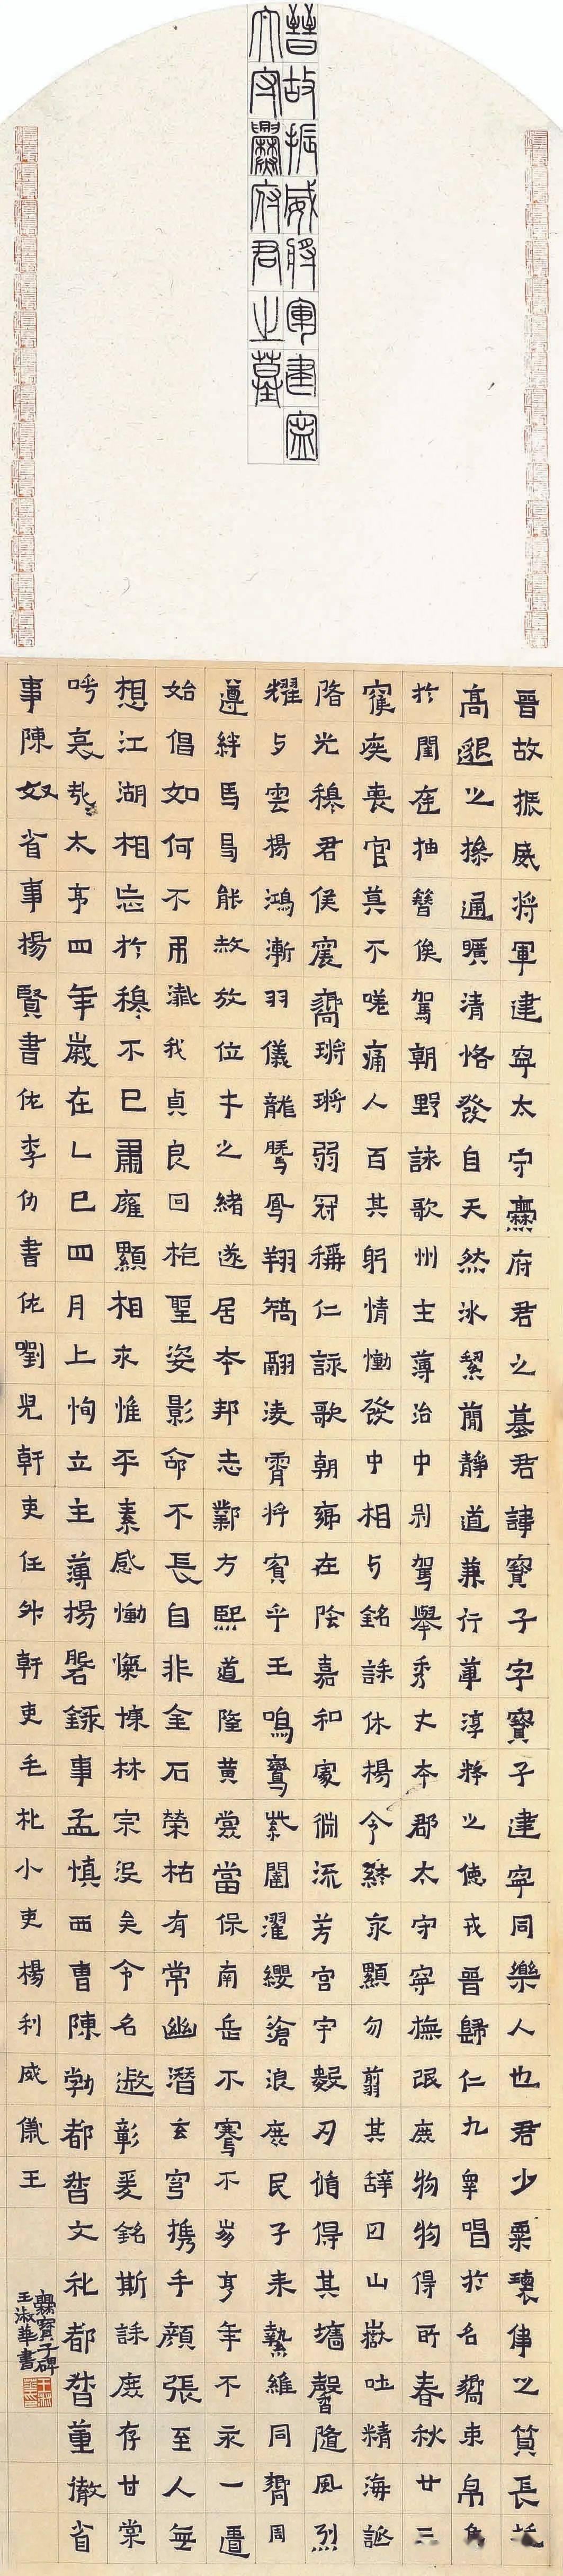 晉故振威將軍建寧
太守爨府君之墓
晉故振威将軍建寧太守爨府君之墓君諱寶子字寶子建寧同樂人也君少稟瓌偉之質長
高邈之操通曠清恪發自天然冰絜簡靜道兼行葦淳粹之德戎晉歸仁九皋唱於名嚮束帛
於閨庭抽簪俟駕朝野詠歌州主薄治中别駕舉秀才本郡太守寧撫氓庶物物得所春秋廿三
寢疾喪官莫不嗟痛人百其躬情慟發中相与銘誄休揚令終永顯勿翦其辭曰山嶽吐精海誕
降光穆君侯震嚮鏘鏘弱冠稱仁詠歌朝鄉在陰嘉和處淵流芳宮宇數刃循得其墻馨隨風烈
耀与雲揚鴻漸羽儀龍騰鳳翔矯翮淩霄将賓乎王鳴鸞紫闥濯纓滄浪庶民子来縶維同嚮周
遵絆馬曷能赦放位才之緒遂居本邦志鄴方熙道隆黄裳當保南岳不騫不崩享年不永一匱
始倡如何不弔殲我貞良回枹聖姿影命不長自非金石榮枯有常幽潛玄宮攜手顏張至人無
想江湖相忘於穆不已肅雍顯相永惟平素感慟愾慷林宗沒矣令名遐彰爰銘斯誄庶存甘棠
呼哀哉太亨四年歲在乙巳四月上恂立主薄楊磐録事孟慎西曹陳勃都督文礼都督董徹省
事陳奴省事楊賢書佐李仂書佐劉兒幹吏任升幹吏毛礼小吏楊利威儀王
爨寶子碑
王淑華書